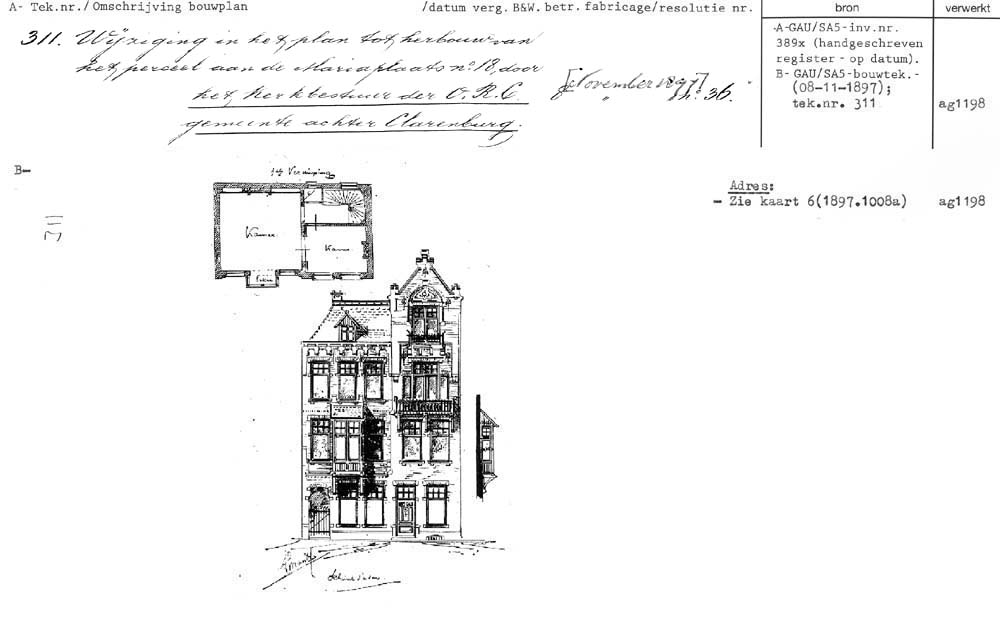 A- Tek.nr./Omschrijving bouwplan /datum verg. B&W. betr. fabricage/resolutie nr. bron verwerkt
311. Wijziging in het plan tot herbouw van
het perceel aan de Mariaplaats no. 18, door
het Kerkbestuur der O. R. C.
gemeente achter Clarenburg.
[November 1897]
" n. 36.
A-GAU/SA5-inv.nr.
389x (handgeschreven
register - op datum).
B- GAU/SA5-bouwtek.-
(08-11-1897);
tek.nr. 311 ag1198
B-
311
1ste Verdieping
Kamer
Kamer
Adres:
- Zie kaart 6(1897.1008a) ag1198